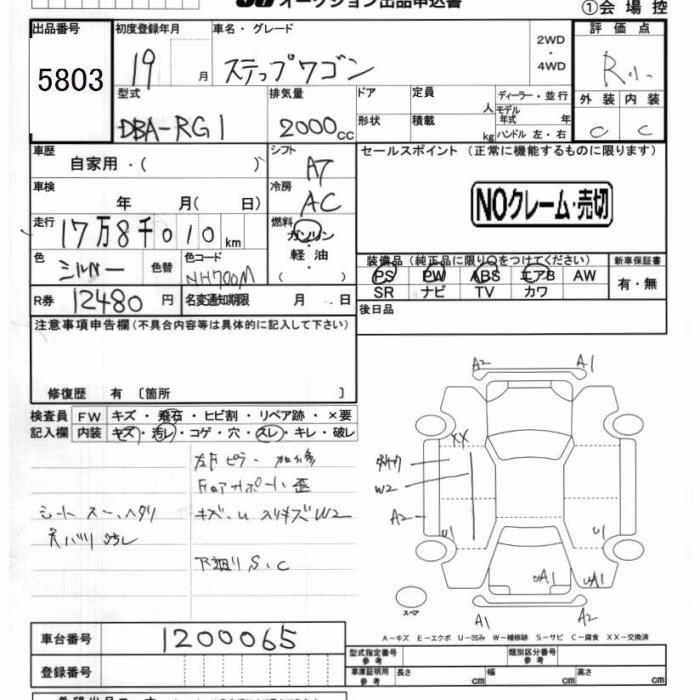 オークション出品申込書
①会場控
出品番号 初度登録年月 車名・グレード 2WD・4WD 評価点
5803 19 月 ステップワゴン R
型式 排気量 ドア 定員 人 ディーラー・並行 外装 内装
DBA-RG1 2000cc 形状 積載 kg モデル年式 年 ハンドル 左・右 C C
車歴 シフト セールスポイント (正常に機能するものに限ります)
自家用・( ) AT
車検 冷房
年 月( 日) AC
NOクレーム・売切
走行 燃料
17万8千010km ガソリン・軽油・( )
装備品 (純正品に限り○をつけてください) 新車保証書
色 シルバー 色替 色コード NH700M
PS PW ABS エアB AW 有・無
SR ナビ TV カワ
R券 12480円 名変通知期限 月 日
後日品
注意事項申告欄(不具合内容等は具体的に記入して下さい)
修復歴 有 〔箇所 〕
検査員 FW キズ・飛石・ヒビ割・リペア跡・×要
記入欄 内装 キズ・汚レ・コゲ・穴・スレ・キレ・破レ
左Fピラー
シート スレ、ヘタリ
キズ、U W2
下廻りS、C
A2 A1
XX
W2
A2
U1 U1
UA1 UA1
スペア
A1 A2
A-キズ E-エクボ U-凹み W-補修跡 S-サビ C-腐食 XX-交換済
車台番号 1200065
型式指定番号 参考 類別区分番号 参考
登録番号
車庫証明用 参考 長さ cm 幅 cm 高さ cm